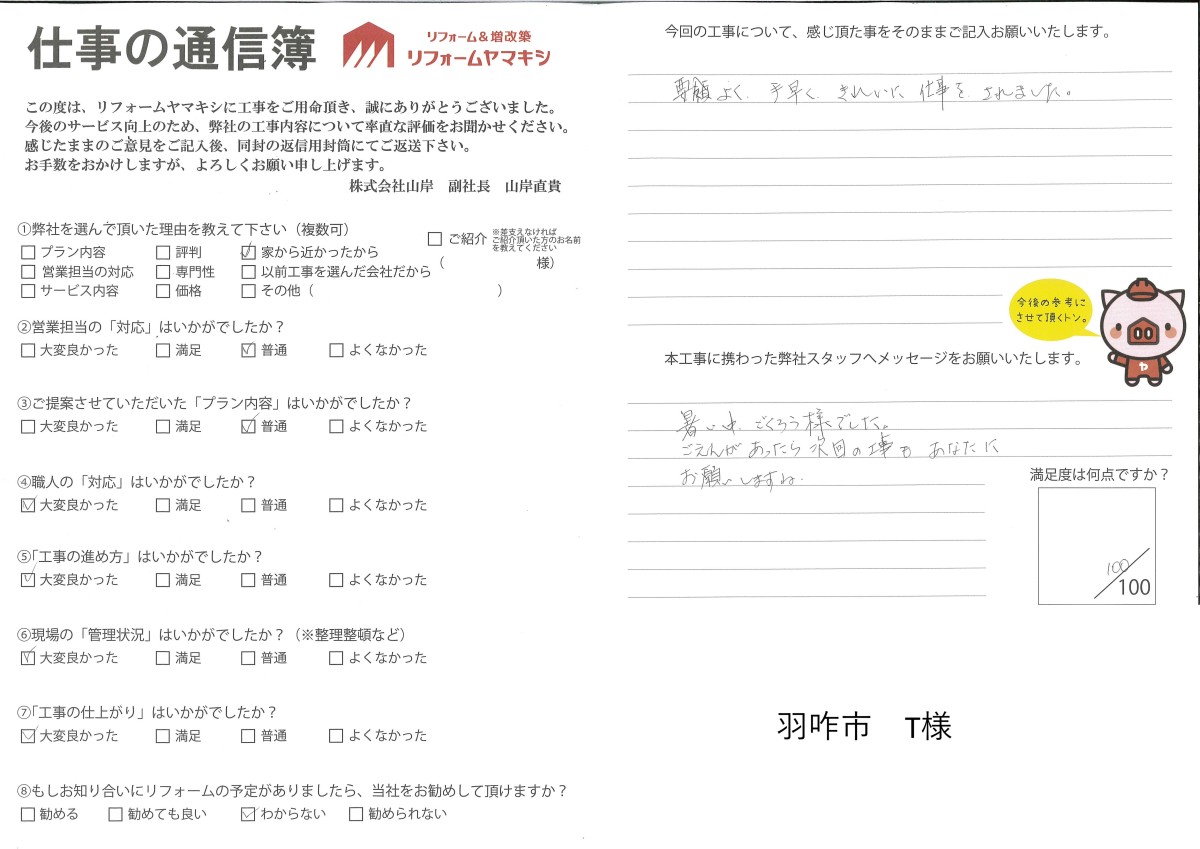 仕事の通信簿
リフォーム&増改築
リフォームヤマキシ
この度は、リフォームヤマキシに工事をご用命頂き、誠にありがとうございました。
今後のサービス向上のため、弊社の工事内容について率直な評価をお聞かせください。
感じたままのご意見をご記入後、同封の返信用封筒にてご返送下さい。
お手数をおかけしますが、よろしくお願い申し上げます。
株式会社山岸 副社長 山岸直貴
①弊社を選んで頂いた理由を教えて下さい（複数可）
□プラン内容 □評判 ☑家から近かったから
□営業担当の対応 □専門性 □以前工事を選んだ会社だから
□サービス内容 □価格 □その他（ ）
□ご紹介 ※差支えなければ
ご紹介頂いた方のお名前
を教えてください
（ 様）
②営業担当の「対応」はいかがでしたか？
□大変良かった □満足 ☑普通 □よくなかった
③ご提案させていただいた「プラン内容」はいかがでしたか？
□大変良かった □満足 ☑普通 □よくなかった
④職人の「対応」はいかがでしたか？
☑大変良かった □満足 □普通 □よくなかった
⑤「工事の進め方」はいかがでしたか？
☑大変良かった □満足 □普通 □よくなかった
⑥現場の「管理状況」はいかがでしたか？（※整理整頓など）
☑大変良かった □満足 □普通 □よくなかった
⑦「工事の仕上がり」はいかがでしたか？
☑大変良かった □満足 □普通 □よくなかった
⑧もしお知り合いにリフォームの予定がありましたら、当社をお勧めして頂けますか？
□勧める □勧めても良い ☑わからない □勧められない
今回の工事について、感じ頂た事をそのままご記入お願いいたします。
要領よく、手早く、きれいに仕事をされました。
今後の参考に
させて頂くトン。
ヤ
本工事に携わった弊社スタッフへメッセージをお願いいたします。
暑い中、ごくろう様でした。
ごえんがあったら次回の工事もあなたに
お願いしますね。
満足度は何点ですか？
100/100
羽咋市 T様